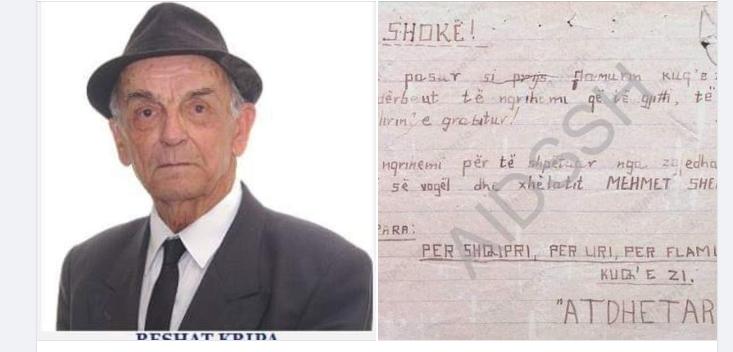 RESHAT KRIPA
SHOKË!
pasur si prijs flamurin kuq'e z
dërbeut të ngrihemi që të gjith, të
lirin' e grabitur!
ngrihemi për të shpëtuar nga zgjedha
së vogël dhe xhelatit MEHMET SHE
PARA:
PER SHQIPRI, PER LIRI, PER FLAMU
KUQ' E ZI.
"ATDHETAR
AIDSSH